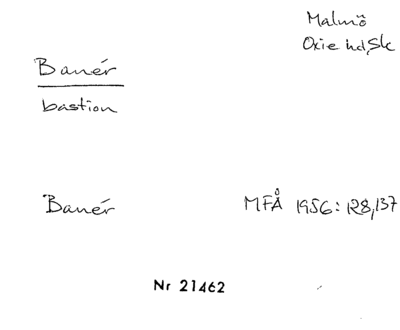 Malmö
Oxie hd, Sk
Banér
bastion
Banér MFÅ 1956: 128, 137
Nr 21462